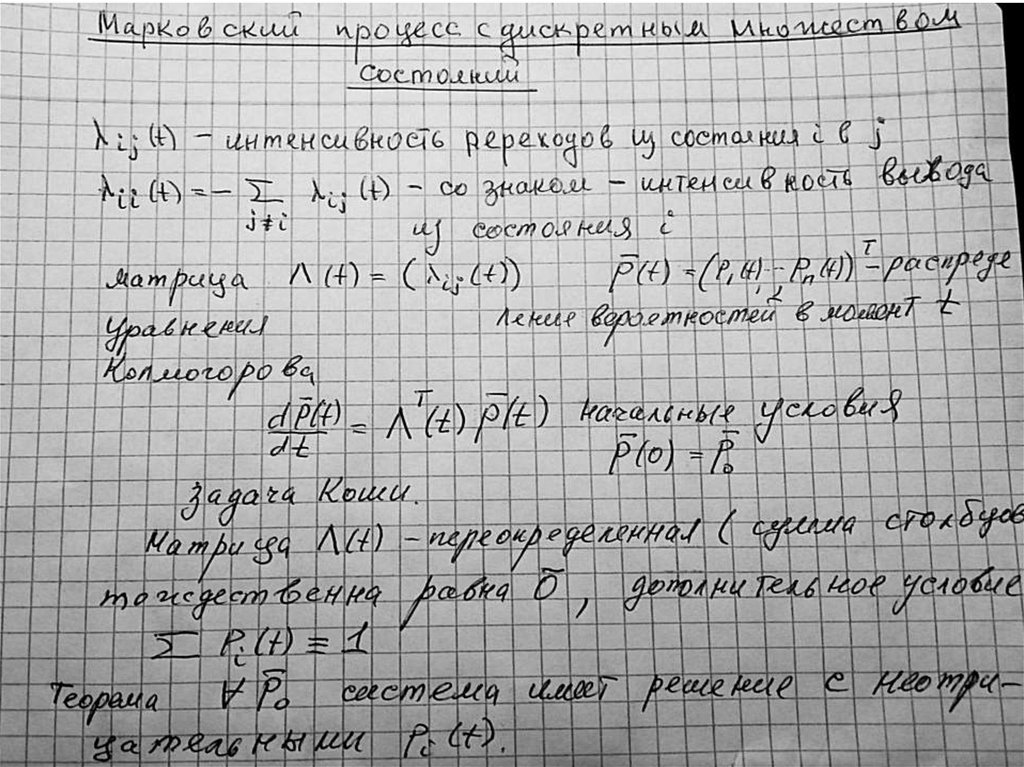 Марковский процесс с дискретным множеством
состояний
λij(t) – интенсивность переходов из состояния i в j
λii(t) = – Σ λij(t) – со знаком – интенсивность вывода
j≠i из состояния i
матрица Λ(t) = (λij(t)) p̄(t) = (P₁(t), ..., Pn(t))ᵀ – распреде
Уравнения ление вероятностей в момент t
Колмогорова
dp̄(t)/dt = Λᵀ(t) p̄(t) начальные условия
p̄(0) = p̄₀
Задача Коши.
Матрица Λ(t) – переопределенная (сумма столбцов
тождественна равна 0̄, дополнительное условие
Σ Pi(t) ≡ 1
Теорема ∀ P̄₀ система имеет решение с неотри-
цательными Pi(t).